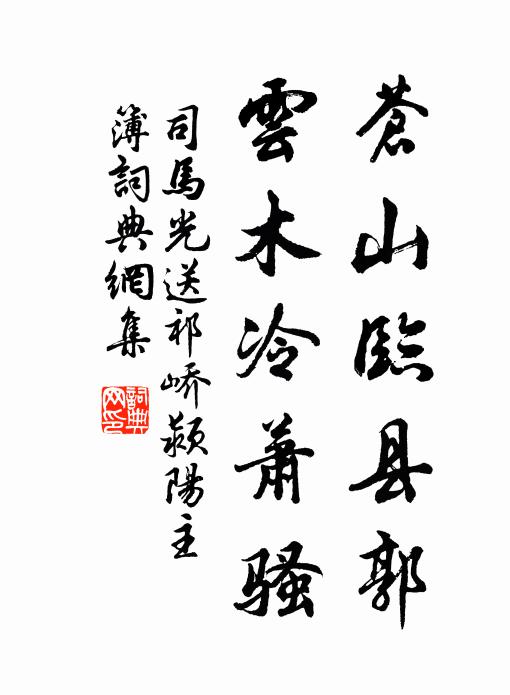 蒼山臨县郭
雲木冷蕭骚
司馬光送祁嶠颍陽主
簿詞典網集
詞典
网印